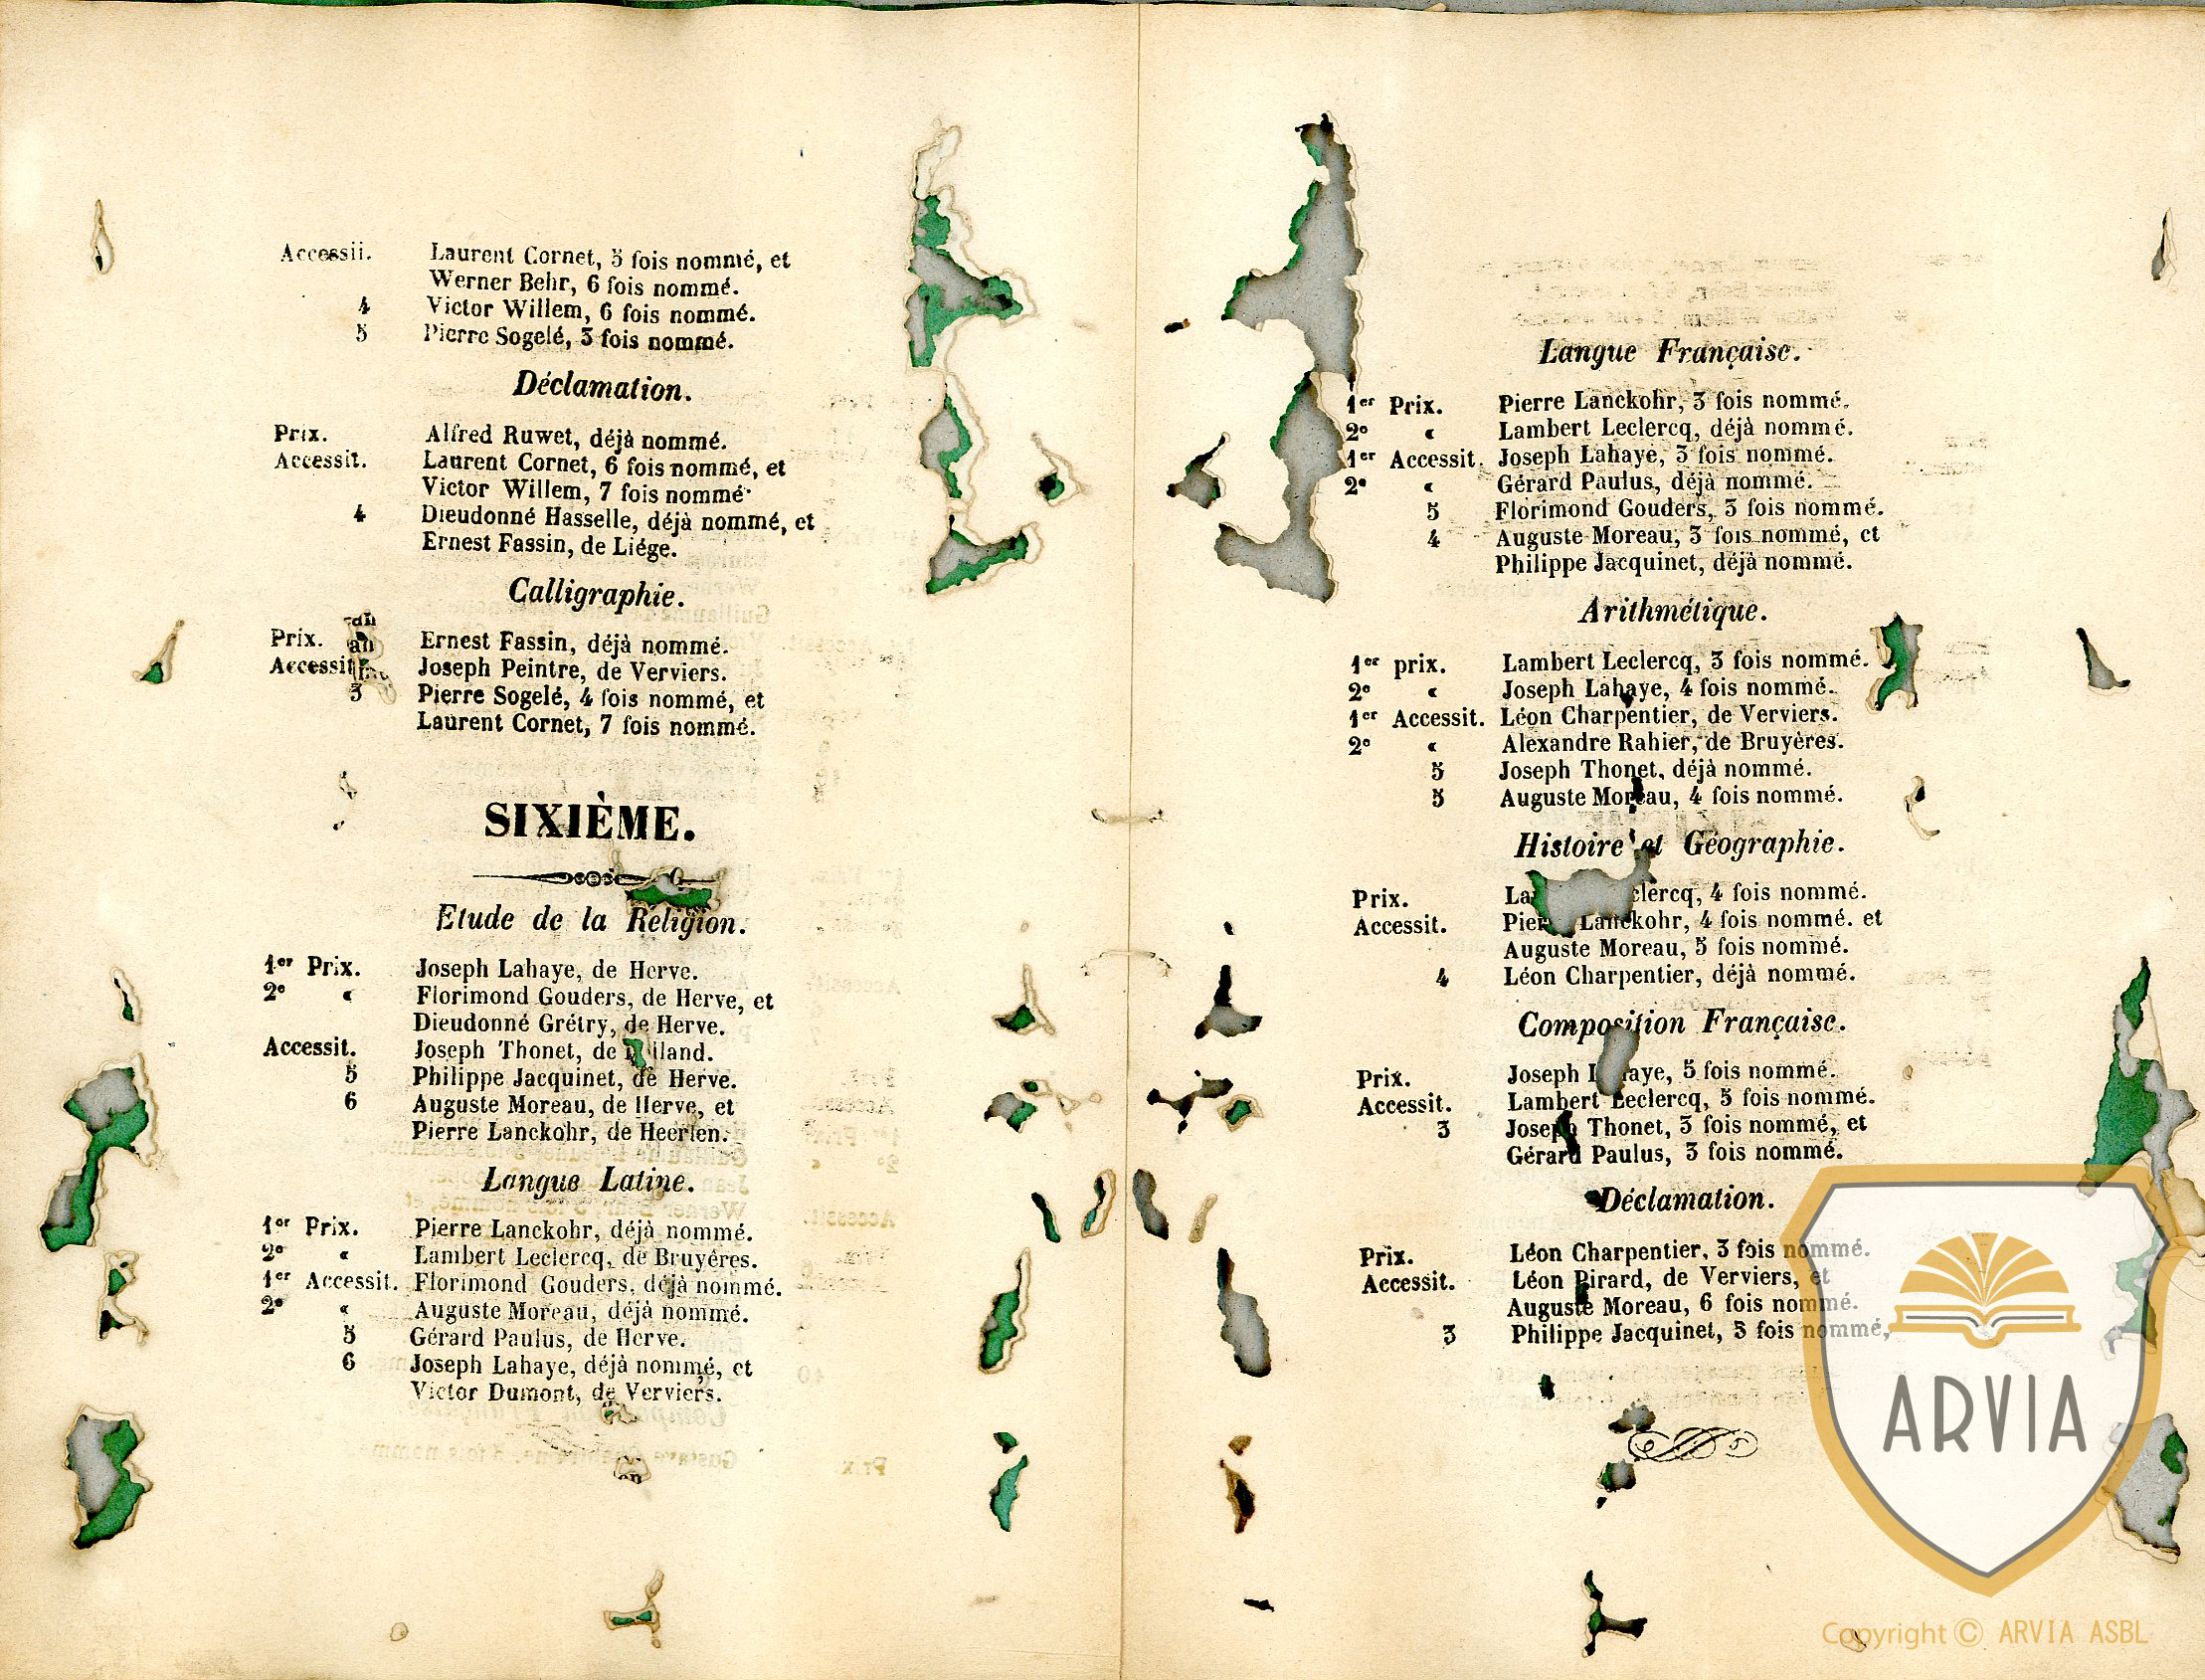 Accessit. Laurent Cornet, 5 fois nommé, et
Werner Behr, 6 fois nommé.
4 Victor Willem, 6 fois nommé.
5 Pierre Sogelé, 3 fois nommé.
Déclamation.
Prix. Alfred Ruwet, déjà nommé.
Accessit. Laurent Cornet, 6 fois nommé, et
Victor Willem, 7 fois nommé.
4 Dieudonné Hasselle, déjà nommé, et
Ernest Fassin, de Liége.
Calligraphie.
Prix. Ernest Fassin, déjà nommé.
Accessit Joseph Peintre, de Verviers.
3 Pierre Sogelé, 4 fois nommé, et
Laurent Cornet, 7 fois nommé.
SIXIÈME.
Etude de la Réligion.
1er Prix. Joseph Lahaye, de Herve.
2e « Florimond Gouders, de Herve, et
Dieudonné Grétry, de Herve.
Accessit. Joseph Thonet, de
5 Philippe Jacquinet, de Herve.
6 Auguste Moreau, de Herve, et
Pierre Lanckohr, de Heerlen.
Langue Latine.
1er Prix. Pierre Lanckohr, déjà nommé.
2e « Lambert Leclercq, de Bruyêres.
1er Accessit. Florimond Gouders, déjà nommé.
2e « Auguste Moreau, déjà nommé.
5 Gérard Paulus, de Herve.
6 Joseph Lahaye, déjà nommé, et
Victor Dumont, de Verviers.
Langue Française.
1er Prix. Pierre Lanckohr, 3 fois nommé.
2e « Lambert Leclercq, déjà nommé.
1er Accessit. Joseph Lahaye, 3 fois nommé.
2e « Gérard Paulus, déjà nommé.
5 Florimond Gouders, 3 fois nommé.
4 Auguste Moreau, 3 fois nommé, et
Philippe Jacquinet, déjà nommé.
Arithmétique.
1er prix. Lambert Leclercq, 3 fois nommé.
2e « Joseph Lahaye, 4 fois nommé.
1er Accessit. Léon Charpentier, de Verviers.
2e « Alexandre Rahier, de Bruyères.
5 Joseph Thonet, déjà nommé.
5 Auguste Moreau, 4 fois nommé.
Histoire et Géographie.
Prix. 4 fois nommé.
Accessit. Pierre Lanckohr, 4 fois nommé. et
Auguste Moreau, 5 fois nommé.
4 Léon Charpentier, déjà nommé.
Composition Française.
Prix. Joseph Lahaye, 5 fois nommé.
Accessit. Lambert Leclercq, 5 fois nommé.
3 Joseph Thonet, 3 fois nommé, et
Gérard Paulus, 3 fois nommé.
Déclamation.
Prix. Léon Charpentier, 3 fois nommé.
Accessit. Léon Pirard, de Verviers, et
Auguste Moreau, 6 fois nommé.
3 Philippe Jacquinet, 3 fois nommé,
ARVIA
Copyright © ARVIA ASBL